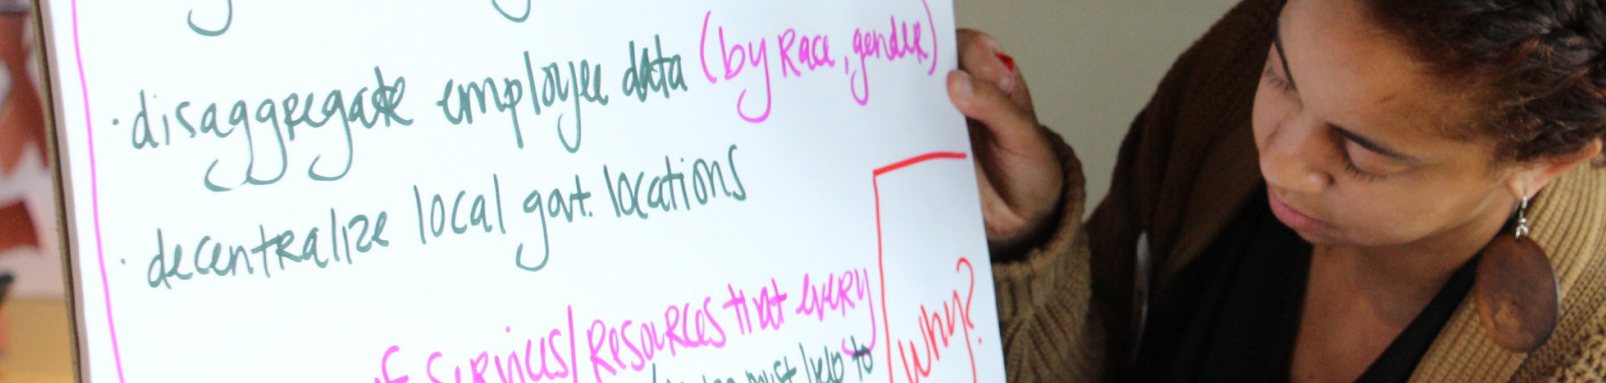 · disaggregate employee data (by Race, gender)
· decentralize local govt. locations
of services/Resources that every
must help to
Why?